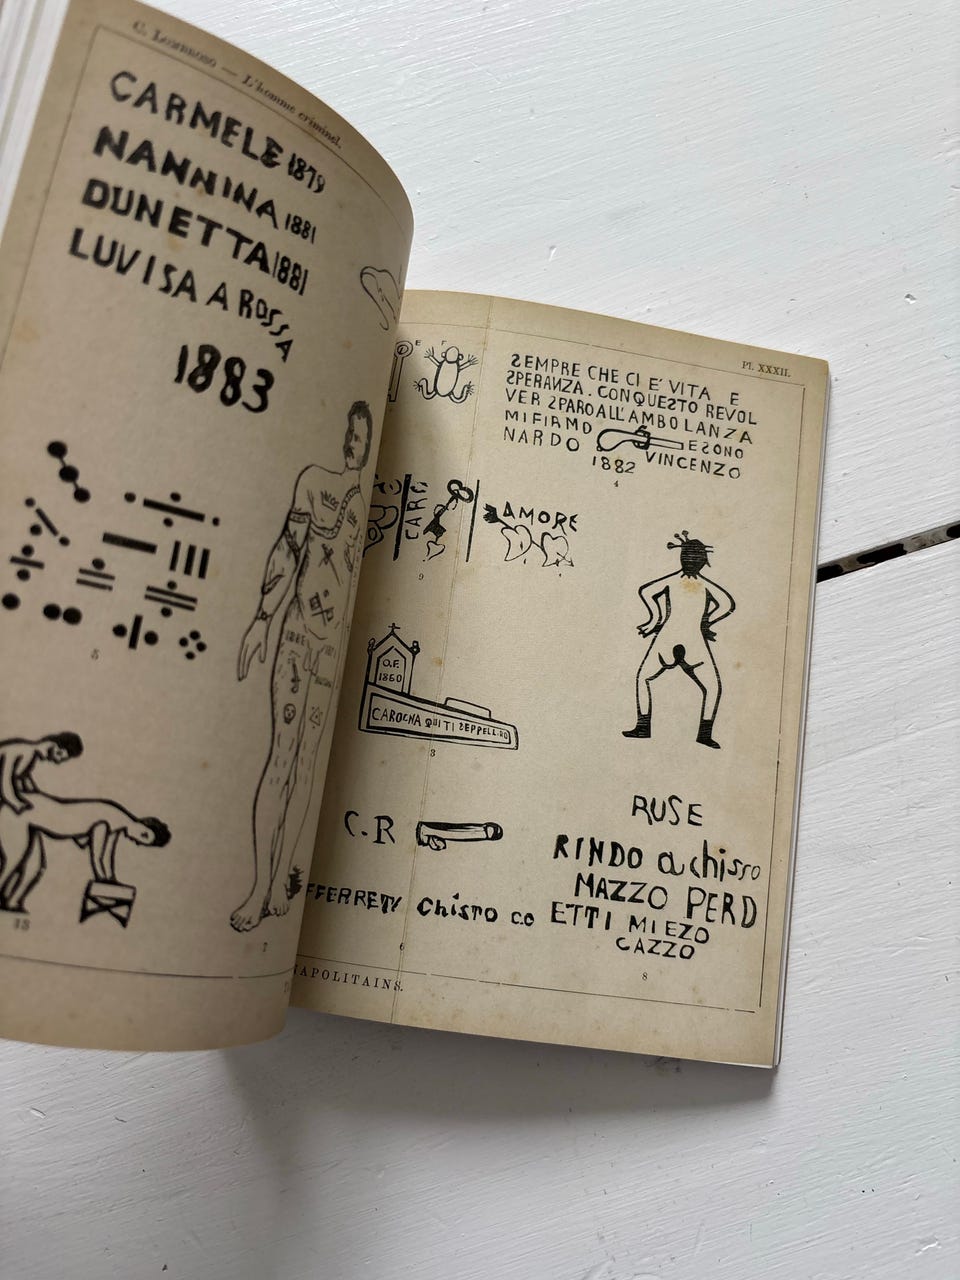 C. Lombroso — L'homme criminel.
CARMELE 1879
NANNINA 1881
DUNETTA 1881
LUVISA A ROSSA
1883
5
13
7
Pl. XXXII.
E F
SEMPRE CHE CI E' VITA E
SPERANZA. CONQUESTO REVOL
VER SPAROALL'AMBOLANZA
MIFIRMO ESONO
NARDO VINCENZO
1882
4
CARO
AMORE
9
O.F.
1860
CAROGNA QUI TI SEPPELLIRO
3
C.R
FFERRETI Chisto co
6
RUSE
RINDO a chisso
MAZZO PERD
ETTI MIEZO
CAZZO
8
NAPOLITAINS.